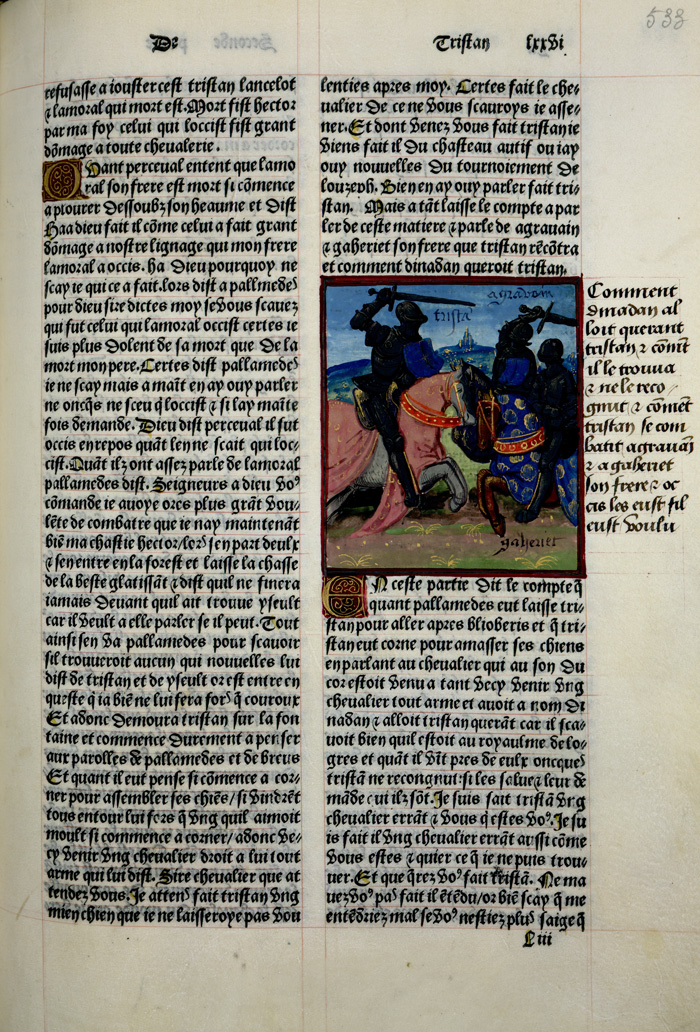 533
De
Tristan lxxvi
refusasse a iouster cest tristan lancelot
⁊ lamoral qui mort est. Mort fist hector
par ma foy celui qui loccist fist grant
dōmage a toute cheualerie.
Quant perceual entent que lamo
ral son frere est mort si cōmence
a plourer dessoubz son heaume et dist
Haa dieu fait il cōme celui a fait grant
dōmage a nostre lignage qui mon frere
lamoral a occis. ha dieu pourquoy ne
scay ie qui ce a fait. lors dist a pallmedeˢ
pour dieu sire dictes moy se vous scauez
qui fut celui qui lamoral occist certes ie
suis plus dolent de sa mort que de la
mort mon pere. Certes dist pallamedeˢ
ie ne scay mais a maīt en ay ouy parler
ne oncq̄s ne sceu q̄ loccist ⁊ si lay maīte
fois demande. Dieu dist perceual il fut
occis en repos quāt len ne scait qui loc⸗
cist. Quāt ilz ont assez parle de lamoral
pallamedes dist. Seigneurs a dieu voꝰ
cōmande ie auoye ores plus grāt vou⸗
lēte de combatre que ie nay maintenāt
biē ma chastie hector/lorˢ sen part deulx
⁊ sen entre en la forest et laisse la chasse
de la beste glatissāt ⁊ dist quil ne finera
iamais deuant quil ait trouue yseult
car il veult a elle parler se il peut. Tout
ainsi sen va pallamedes pour scauoir
sil trouueroit aucun qui nouuelles lui
dist de tristan et de yseult or est entre en
queste q̄ ia biē ne lui fera forˢ q̄ couroux
Et adonc demoura tristan sur la fon
taine et commence durement a penser
aux parolles de pallamedes et de breus
Et quant il eut pense si cōmence a cor⸗
ner pour assembler ses chiēs/si vindrēt
tous entour lui fors q̄ vng quil aimoit
moult si commence a corner/adonc ve⸗
cy venir vng cheualier droit a lui tout
arme qui lui dist. Sire cheualier que at
tendez vous. Je attenˢ fait tristan vng
mien chien que ie ne laisseroye pas vou
lenties apres moy. Certes fait le che⸗
ualier de ce ne vous scauroys ie asse⸗
ner. Et dont venez vous fait tristan ie
viens fait il du chasteau autif ou iay
ouy nouuelles du tournoiement de
louzeph. Bien en ay ouy parler fait tri⸗
stan. Mais a tāt laisse le compte a par
ler de ceste matiere ⁊ parle de agrauain
⁊ gaheriet son frere que tristan rēcōtra
et comment dinadan queroit tristan.
agravain
tristā
gaheriet
Comment
dinadan al
loit querant
tristan ⁊ cōmēt
il le trouua
⁊ ne le reco⸗
gnut ⁊ cōmēt
tristan se com
batit a grauaī
⁊ a gaheriet
son frere ⁊ oc
cis les eust sil
eust voulu
En ceste partie dit le compte q̄
quant pallamedes eut laisse tri⸗
stan pour aller apres blioberis et q̄ tri⸗
stan eut corne pour amasser ses chiens
en parlant au cheualier qui au son du
cor estoit venu a tant vecy venir vng
cheualier tout arme et auoit a nom di
nadan ⁊ alloit tristan querāt car il sca⸗
uoit bien quil estoit au royaulme de lo⸗
gres et quāt il vīt pres de eulx oncqueˢ
tristā ne recongnut: si les salue ⁊ leur de
māde qui ilz sōt. Je suis fait tristā vng
cheualier errāt ⁊ vous q̄ estes voꝰ. Je su
is fait il vng cheualier errāt aussi cōme
vous estes ⁊ quier ce q̄ ie ne puis trou⸗
uer. Et que q̄rez voꝰ fait tristā. Ne ma
uez voꝰ paˢ fait il ētēdu/or biē scay q̄ me
entēdriez mal se voꝰ nestiez pluˢ saige q̄
L iii